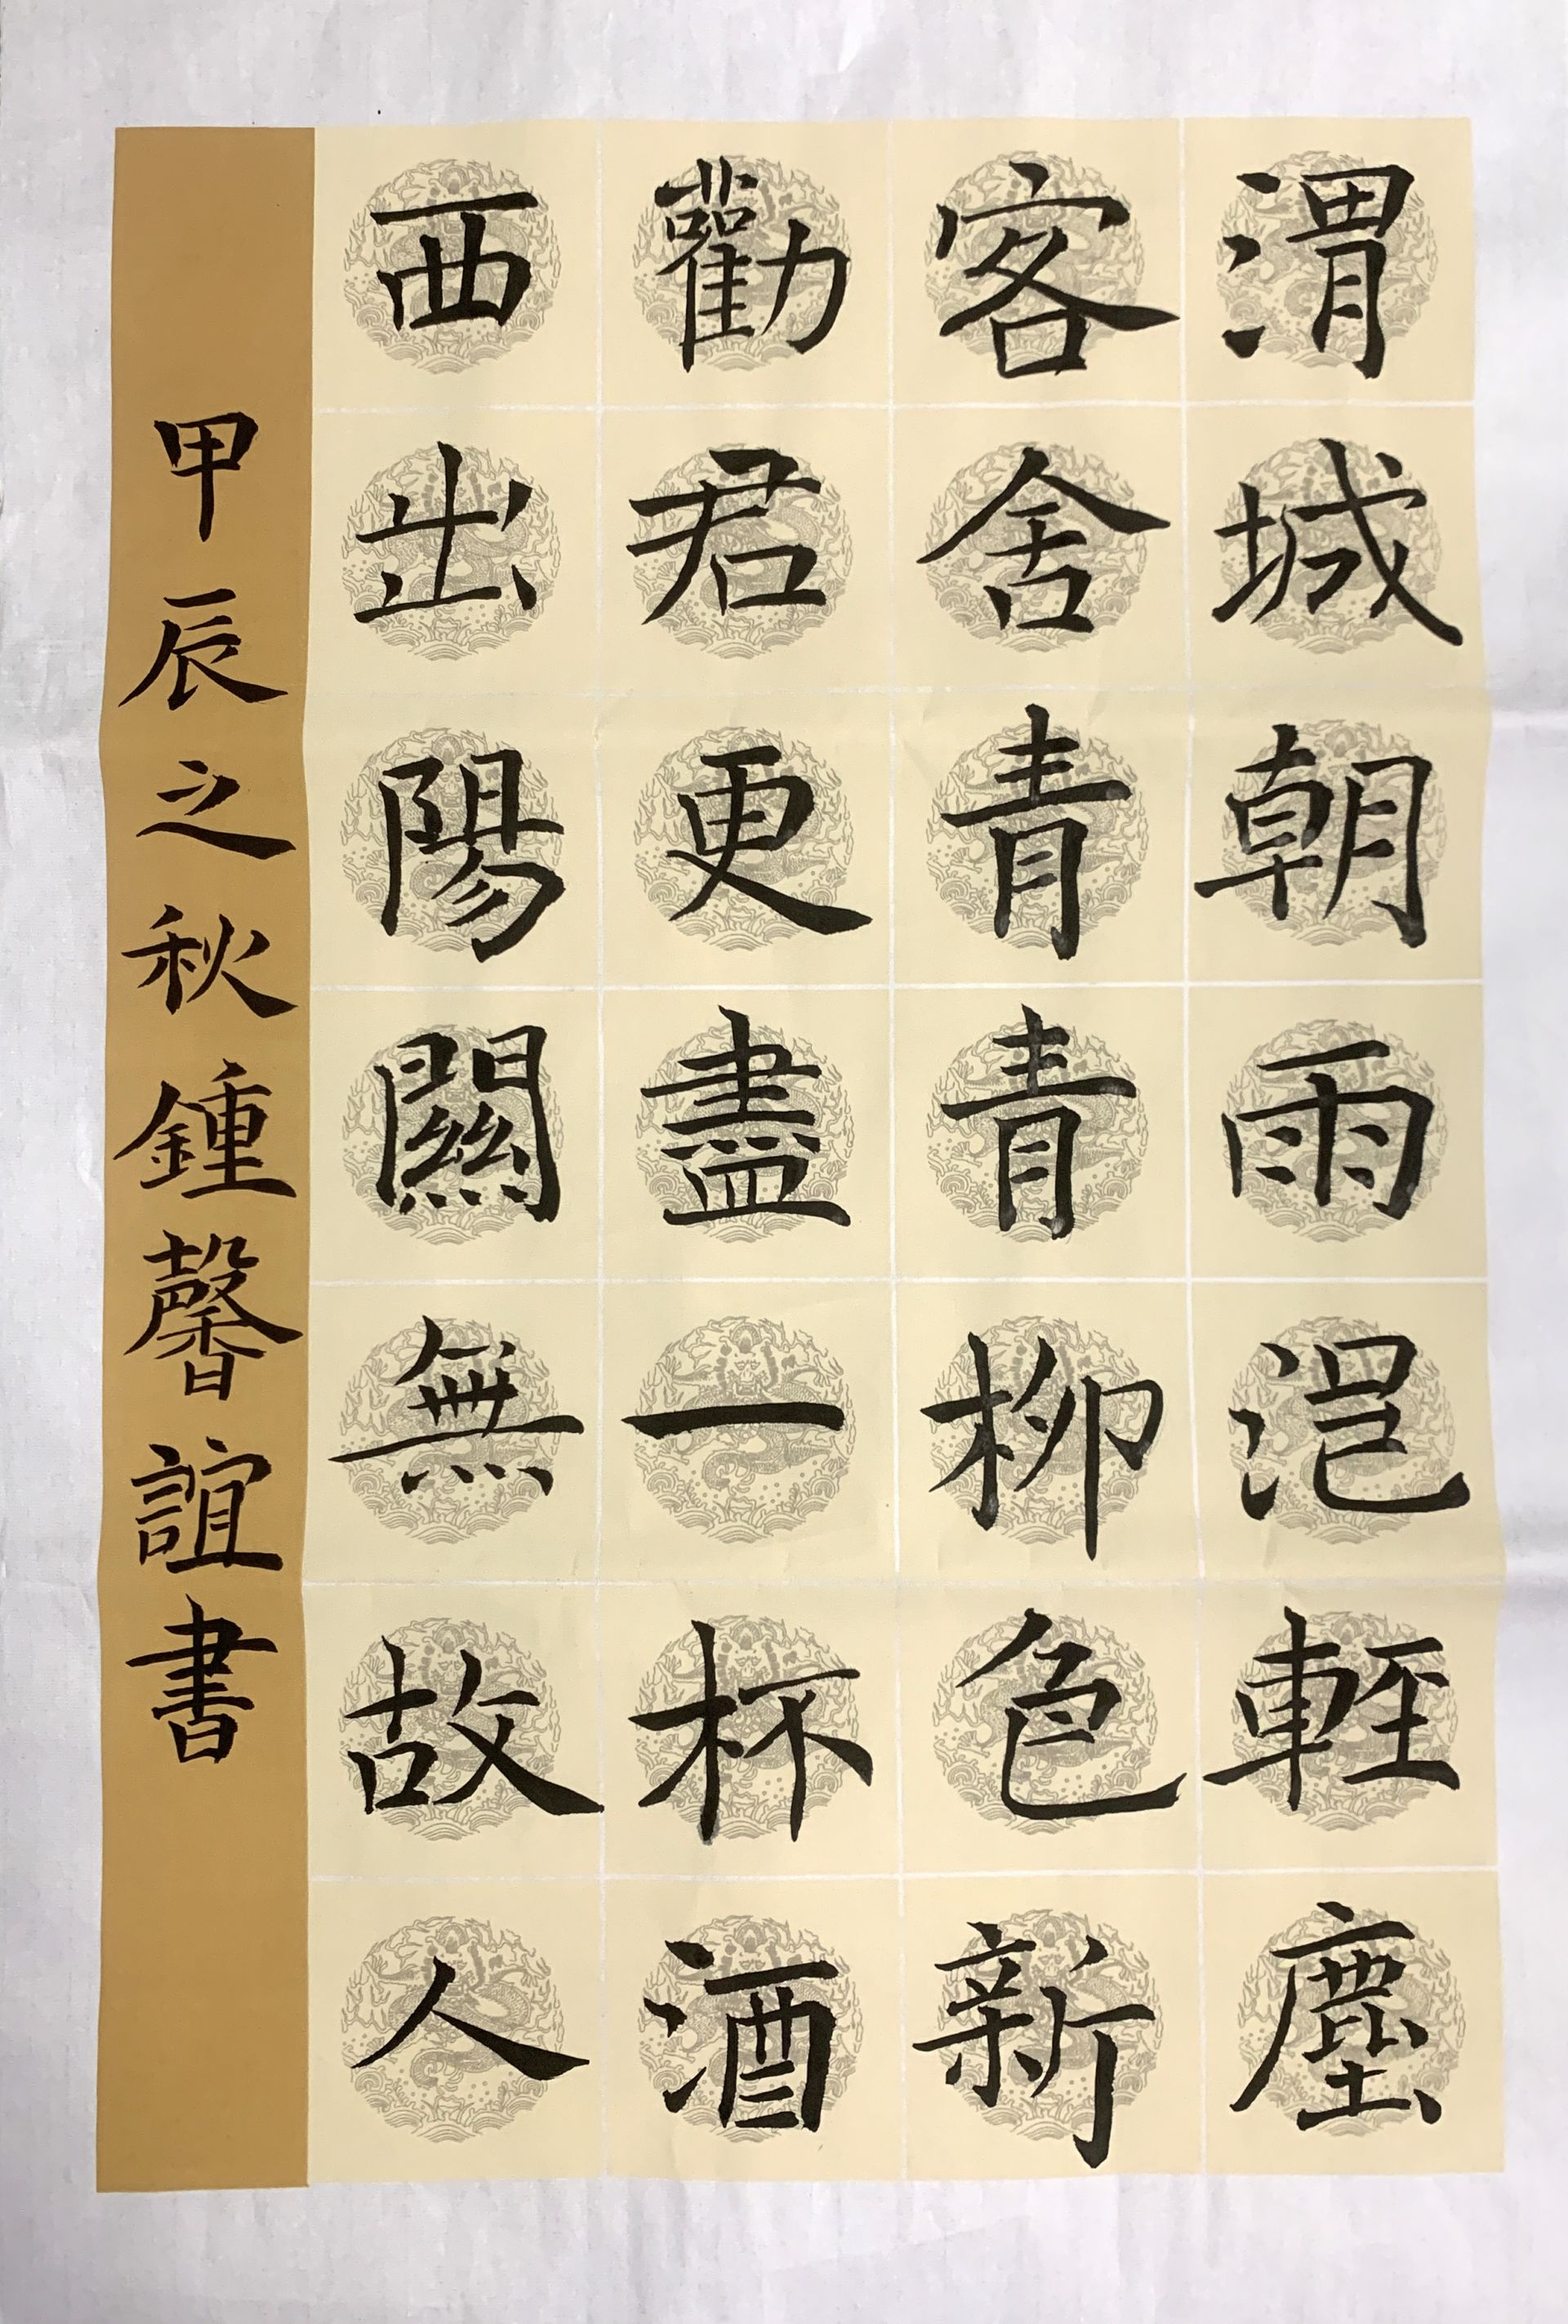 渭城朝雨浥輕塵
客舍青青柳色新
勸君更盡一杯酒
西出陽關無故人
甲辰之秋鍾馨誼書